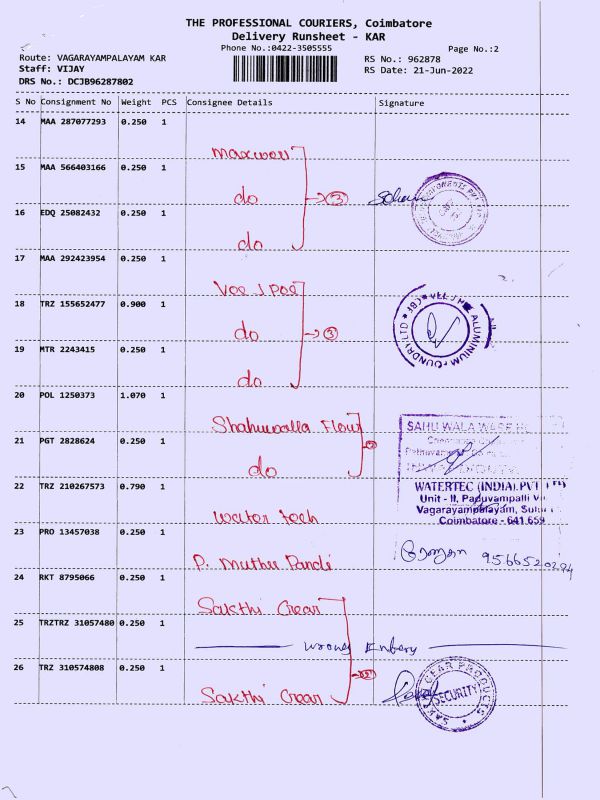 THE PROFESSIONAL COURIERS, Coimbatore
Delivery Runsheet - KAR
Phone No.:0422-3505555
Page No.:2
Route: VAGARAYAMPALAYAM KAR
RS No.: 962878
Staff: VIJAY
RS Date: 21-Jun-2022
DRS No.: DCJB96287802
S No Consignment No Weight PCS Consignee Details Signature
14 MAA 287077293 0.250 1
15 MAA 566403166 0.250 1
do
③
16 EDQ 25082432 0.250 1
do
17 MAA 292423954 0.250 1
Vee J Pee
18 TRZ 155652477 0.900 1
do
③
VEE J
ALUMINIUM FOUNDRY LTD * CBE *
19 MTR 2243415 0.250 1
do
20 POL 1250373 1.070 1
Shahuwalla Flour
SAHU WALA
21 PGT 2828624 0.250 1
do
22 TRZ 210267573 0.790 1
water tech
WATERTEC (INDIA) PVT
Unit - II, Paduvampalli
Vagarayampalayam,
Coimbatore - 641 659
23 PRO 13457038 0.250 1
P. Muthu Pandi
9566520294
24 RKT 8795066 0.250 1
Sakthi Gear
25 TRZTRZ 31057480 0.250 1
wrong Entery
26 TRZ 310574808 0.250 1
Sakthi Gear
GEAR PRODUCTS
SECURITY